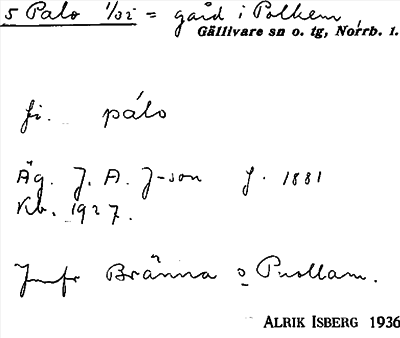 5 Palo 1/32 = gård i Polkem,
Gällivare sn o. tg, Norrb. l.
fi. pálo
Äg. J. A. J-son f. 1881
Kb. 1927.
Jmfr Bränna o Puollam.
ALRIK ISBERG 1936